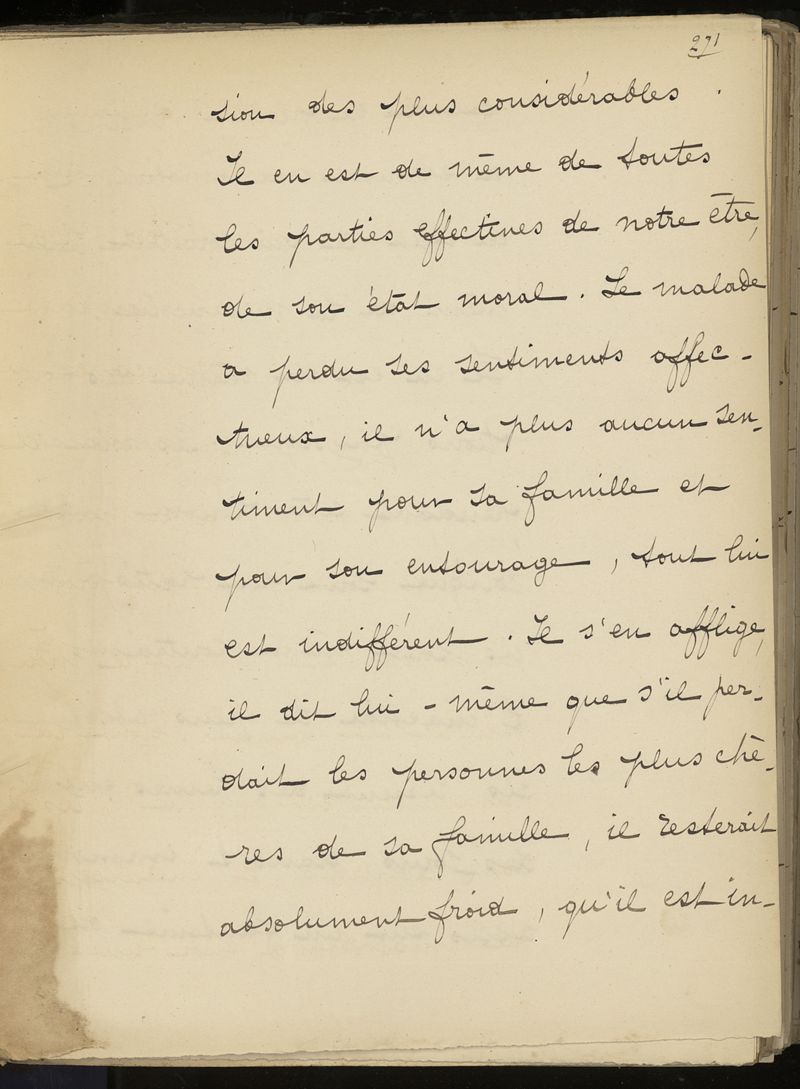 271
sion des plus considérables.
Il en est de même de toutes
les parties effectives de notre être,
de son état moral. Le malade
a perdu ses sentiments affec-
tueux, il n'a plus aucun sen-
timent pour sa famille et
pour son entourage, tout lui
est indifférent. Il s'en afflige,
il dit lui-même que s'il per-
dait les personnes les plus chè-
res de sa famille, il resterait
absolument froid, qu'il est in-